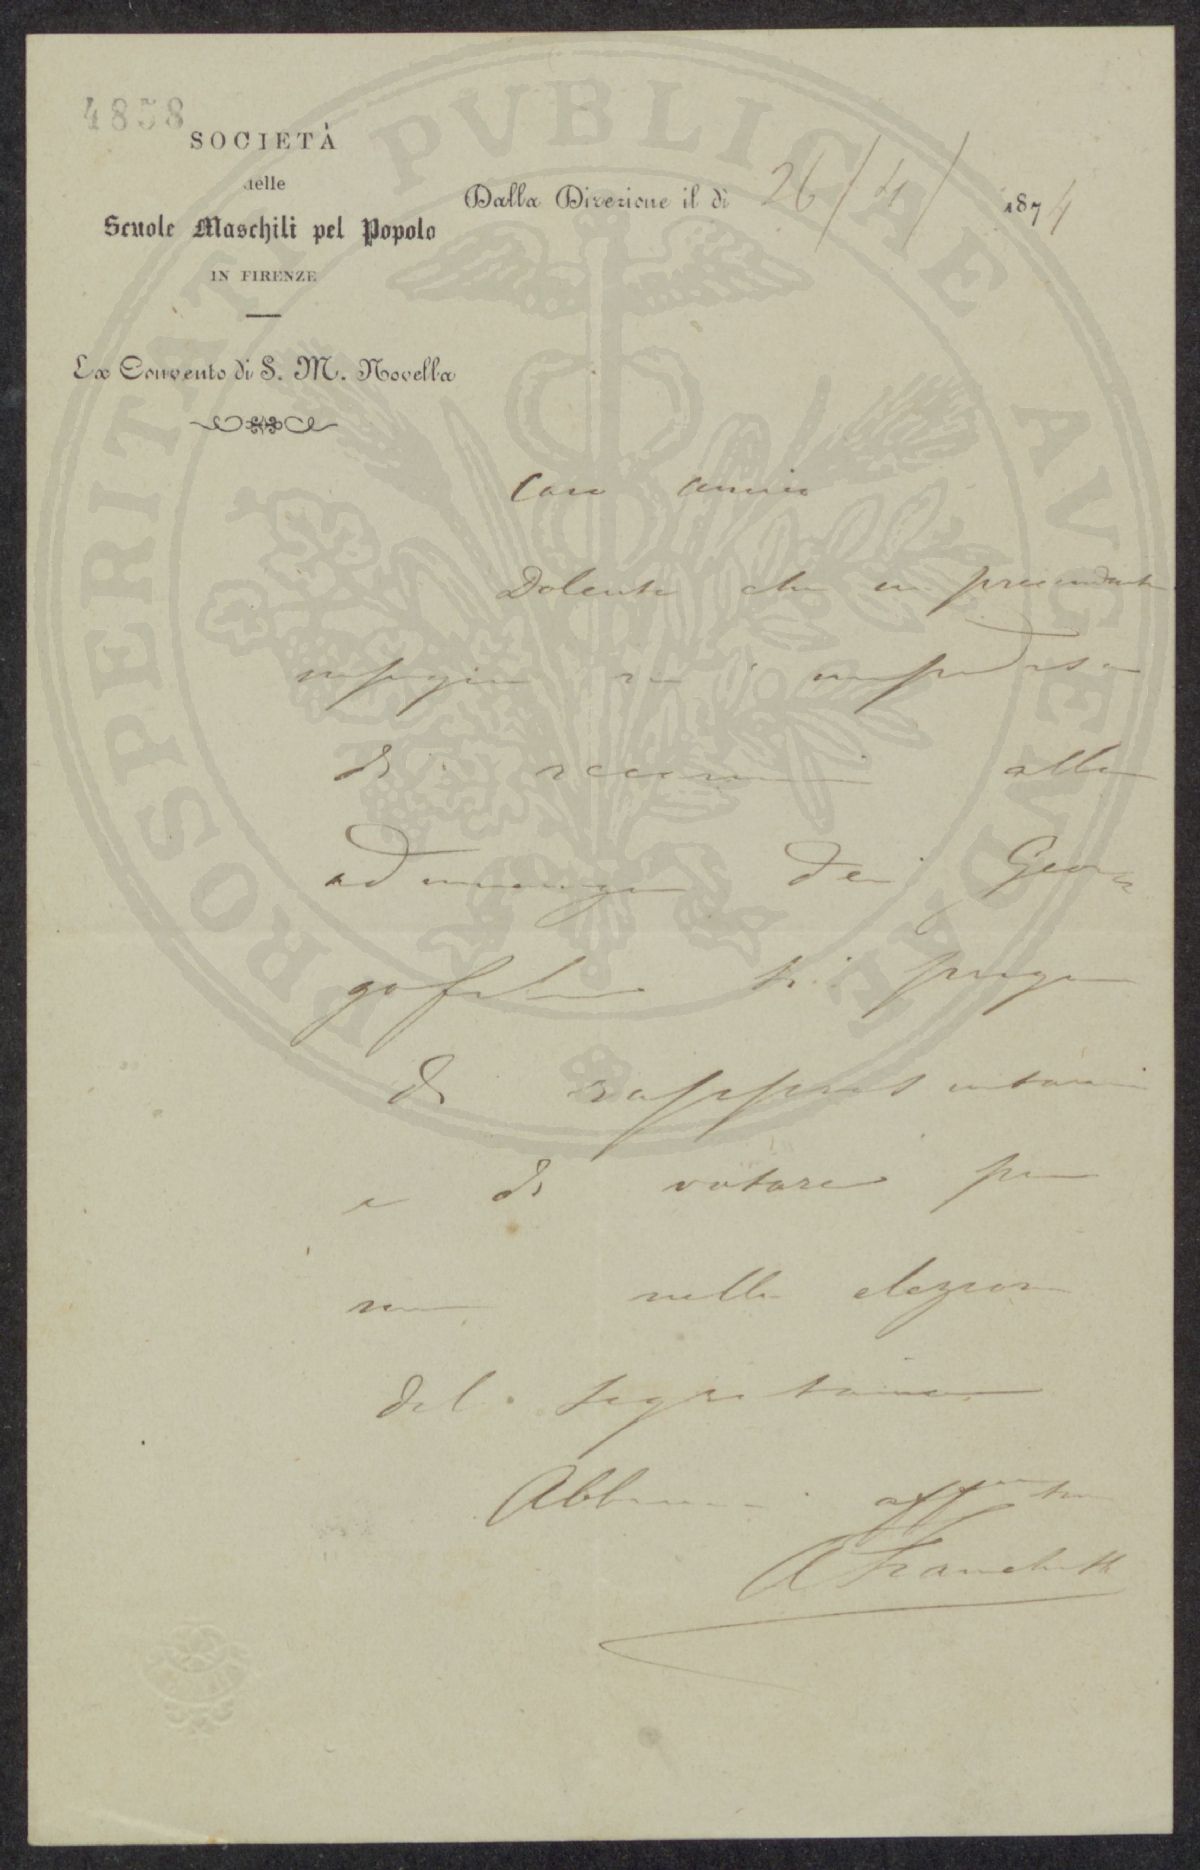 4858
SOCIETÀ
delle
Scuole Maschili pel Popolo
IN FIRENZE
Ex Convento di S. M. Novella
Dalla Direzione il dì 26/4/ 1874
PROSPERITATI PVBLICAE AVGENDAE
Caro amico
Dolente che un precedente
impegno mi impedisca
di recarmi alla
adunanza dei Geor=
gofili ti prego
di rappresentarmi
e di votare per
me nella elezione
del segretario
Abbimi
A Franchetti